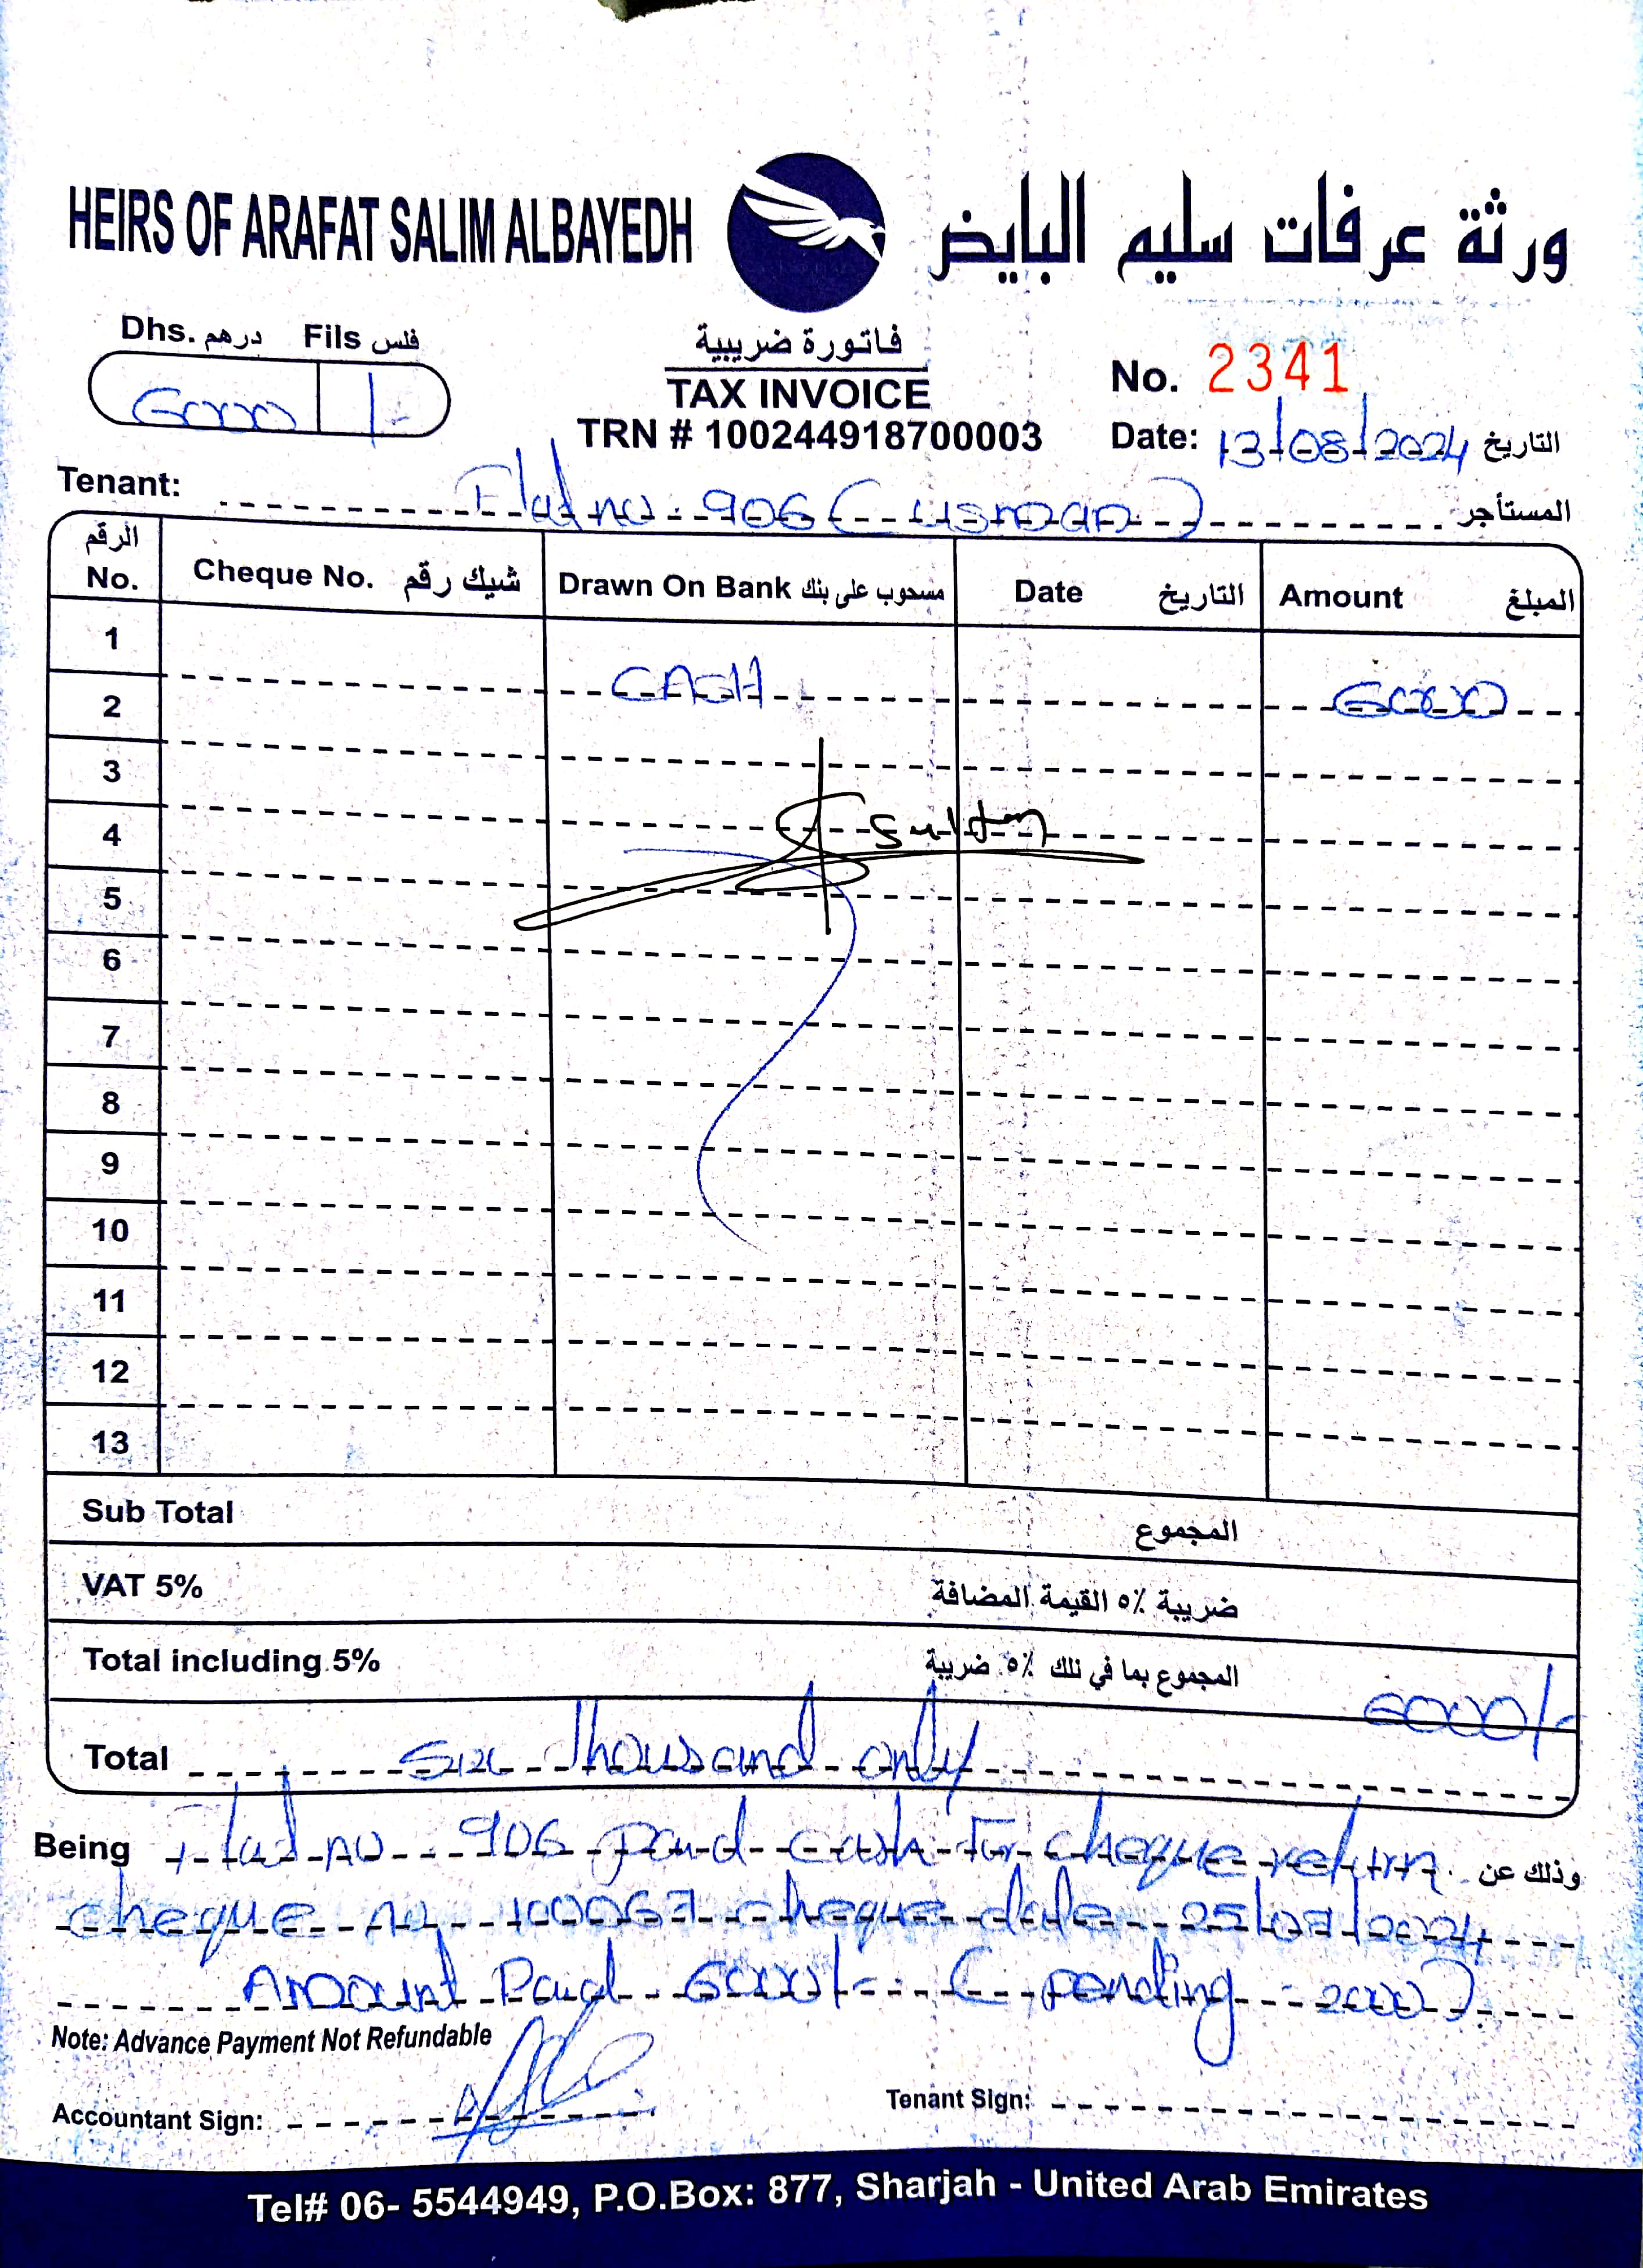 HEIRS OF ARAFAT SALIM ALBAYEDH ورثة عرفات سليم البايض
Dhs. درهم Fils فلس
6000 /-
فاتورة ضريبية
TAX INVOICE
TRN # 100244918700003
No. 2341
Date: 13/08/2024 التاريخ
Tenant: Flat no. 906 (usman) المستأجر
الرقم No. Cheque No. شيك رقم Drawn On Bank مسحوب على بنك Date التاريخ Amount المبلغ
1
2 CASH 6000
3
4 Sultan
5
6
7
8
9
10
11
12
13
Sub Total المجموع
VAT 5% ضريبة ٥٪ القيمة المضافة
Total including 5% المجموع بما في ذلك ٥٪ ضريبة 6000/-
Total Six Thousand only
Being Flat no 906 paid cash for cheque return وذلك عن
cheque no 100067 cheque date 25/07/2024
Amount Paid 6000/- (pending 2000)
Note: Advance Payment Not Refundable
Accountant Sign: Tenant Sign:
Tel# 06- 5544949, P.O.Box: 877, Sharjah - United Arab Emirates